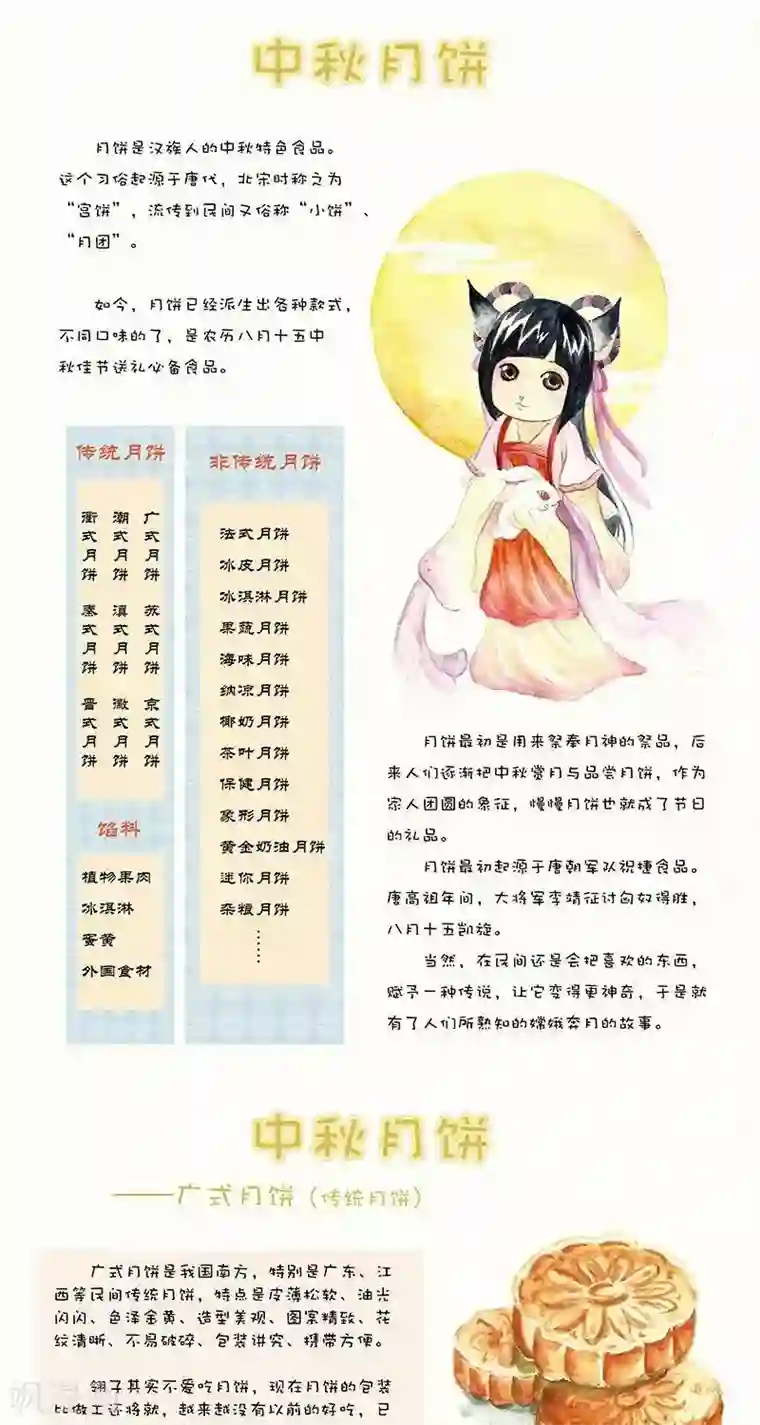 中秋月饼
月饼是汉族人的中秋特色食品。
这个习俗起源于唐代，北宋时称之为
“宫饼”，流传到民间又俗称“小饼”、
“月团”。
如今，月饼已经派生出各种款式，
不同口味的了，是农历八月十五中
秋佳节送礼必备食品。
传统月饼
广式月饼
潮式月饼
衢式月饼
苏式月饼
滇式月饼
秦式月饼
京式月饼
徽式月饼
晋式月饼
馅料
植物果肉
冰淇淋
蛋黄
外国食材
非传统月饼
法式月饼
冰皮月饼
冰淇淋月饼
果蔬月饼
海味月饼
纳凉月饼
椰奶月饼
茶叶月饼
保健月饼
象形月饼
黄金奶油月饼
迷你月饼
杂粮月饼
……
月饼最初是用来祭奉月神的祭品，后
来人们逐渐把中秋赏月与品尝月饼，作为
家人团圆的象征，慢慢月饼也就成了节日
的礼品。
月饼最初起源于唐朝军队祝捷食品。
唐高祖年间，大将军李靖征讨匈奴得胜，
八月十五凯旋。
当然，在民间还是会把喜欢的东西，
赋予一种传说，让它变得更神奇，于是就
有了人们所熟知的嫦娥奔月的故事。
中秋月饼
——广式月饼（传统月饼）
广式月饼是我国南方，特别是广东、江
西等民间传统月饼，特点是皮薄松软、油光
闪闪、色泽金黄、造型美观、图案精致、花
纹清晰、不易破碎、包装讲究、携带方便。
翎子其实不爱吃月饼，现在月饼的包装
比做工还将就，越来越没有以前的好吃，已